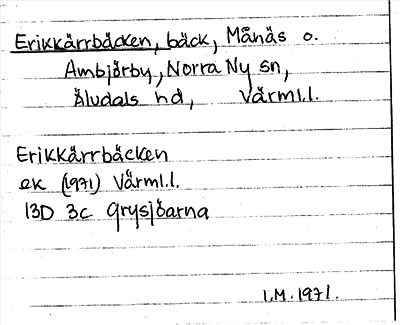 Erikkärrbäcken, bäck, Månäs o.
Ambjörby, Norra Ny sn,
Äludals hd, Värml.l.
Erikkärrbäcken
ek (1971) Värml.l.
13D 3c Grysjöarna
I.M. 1971.